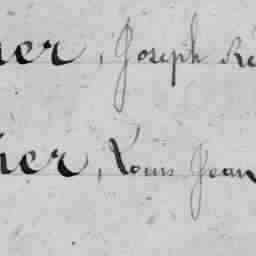 her, Joseph Re
her, Louis Jean